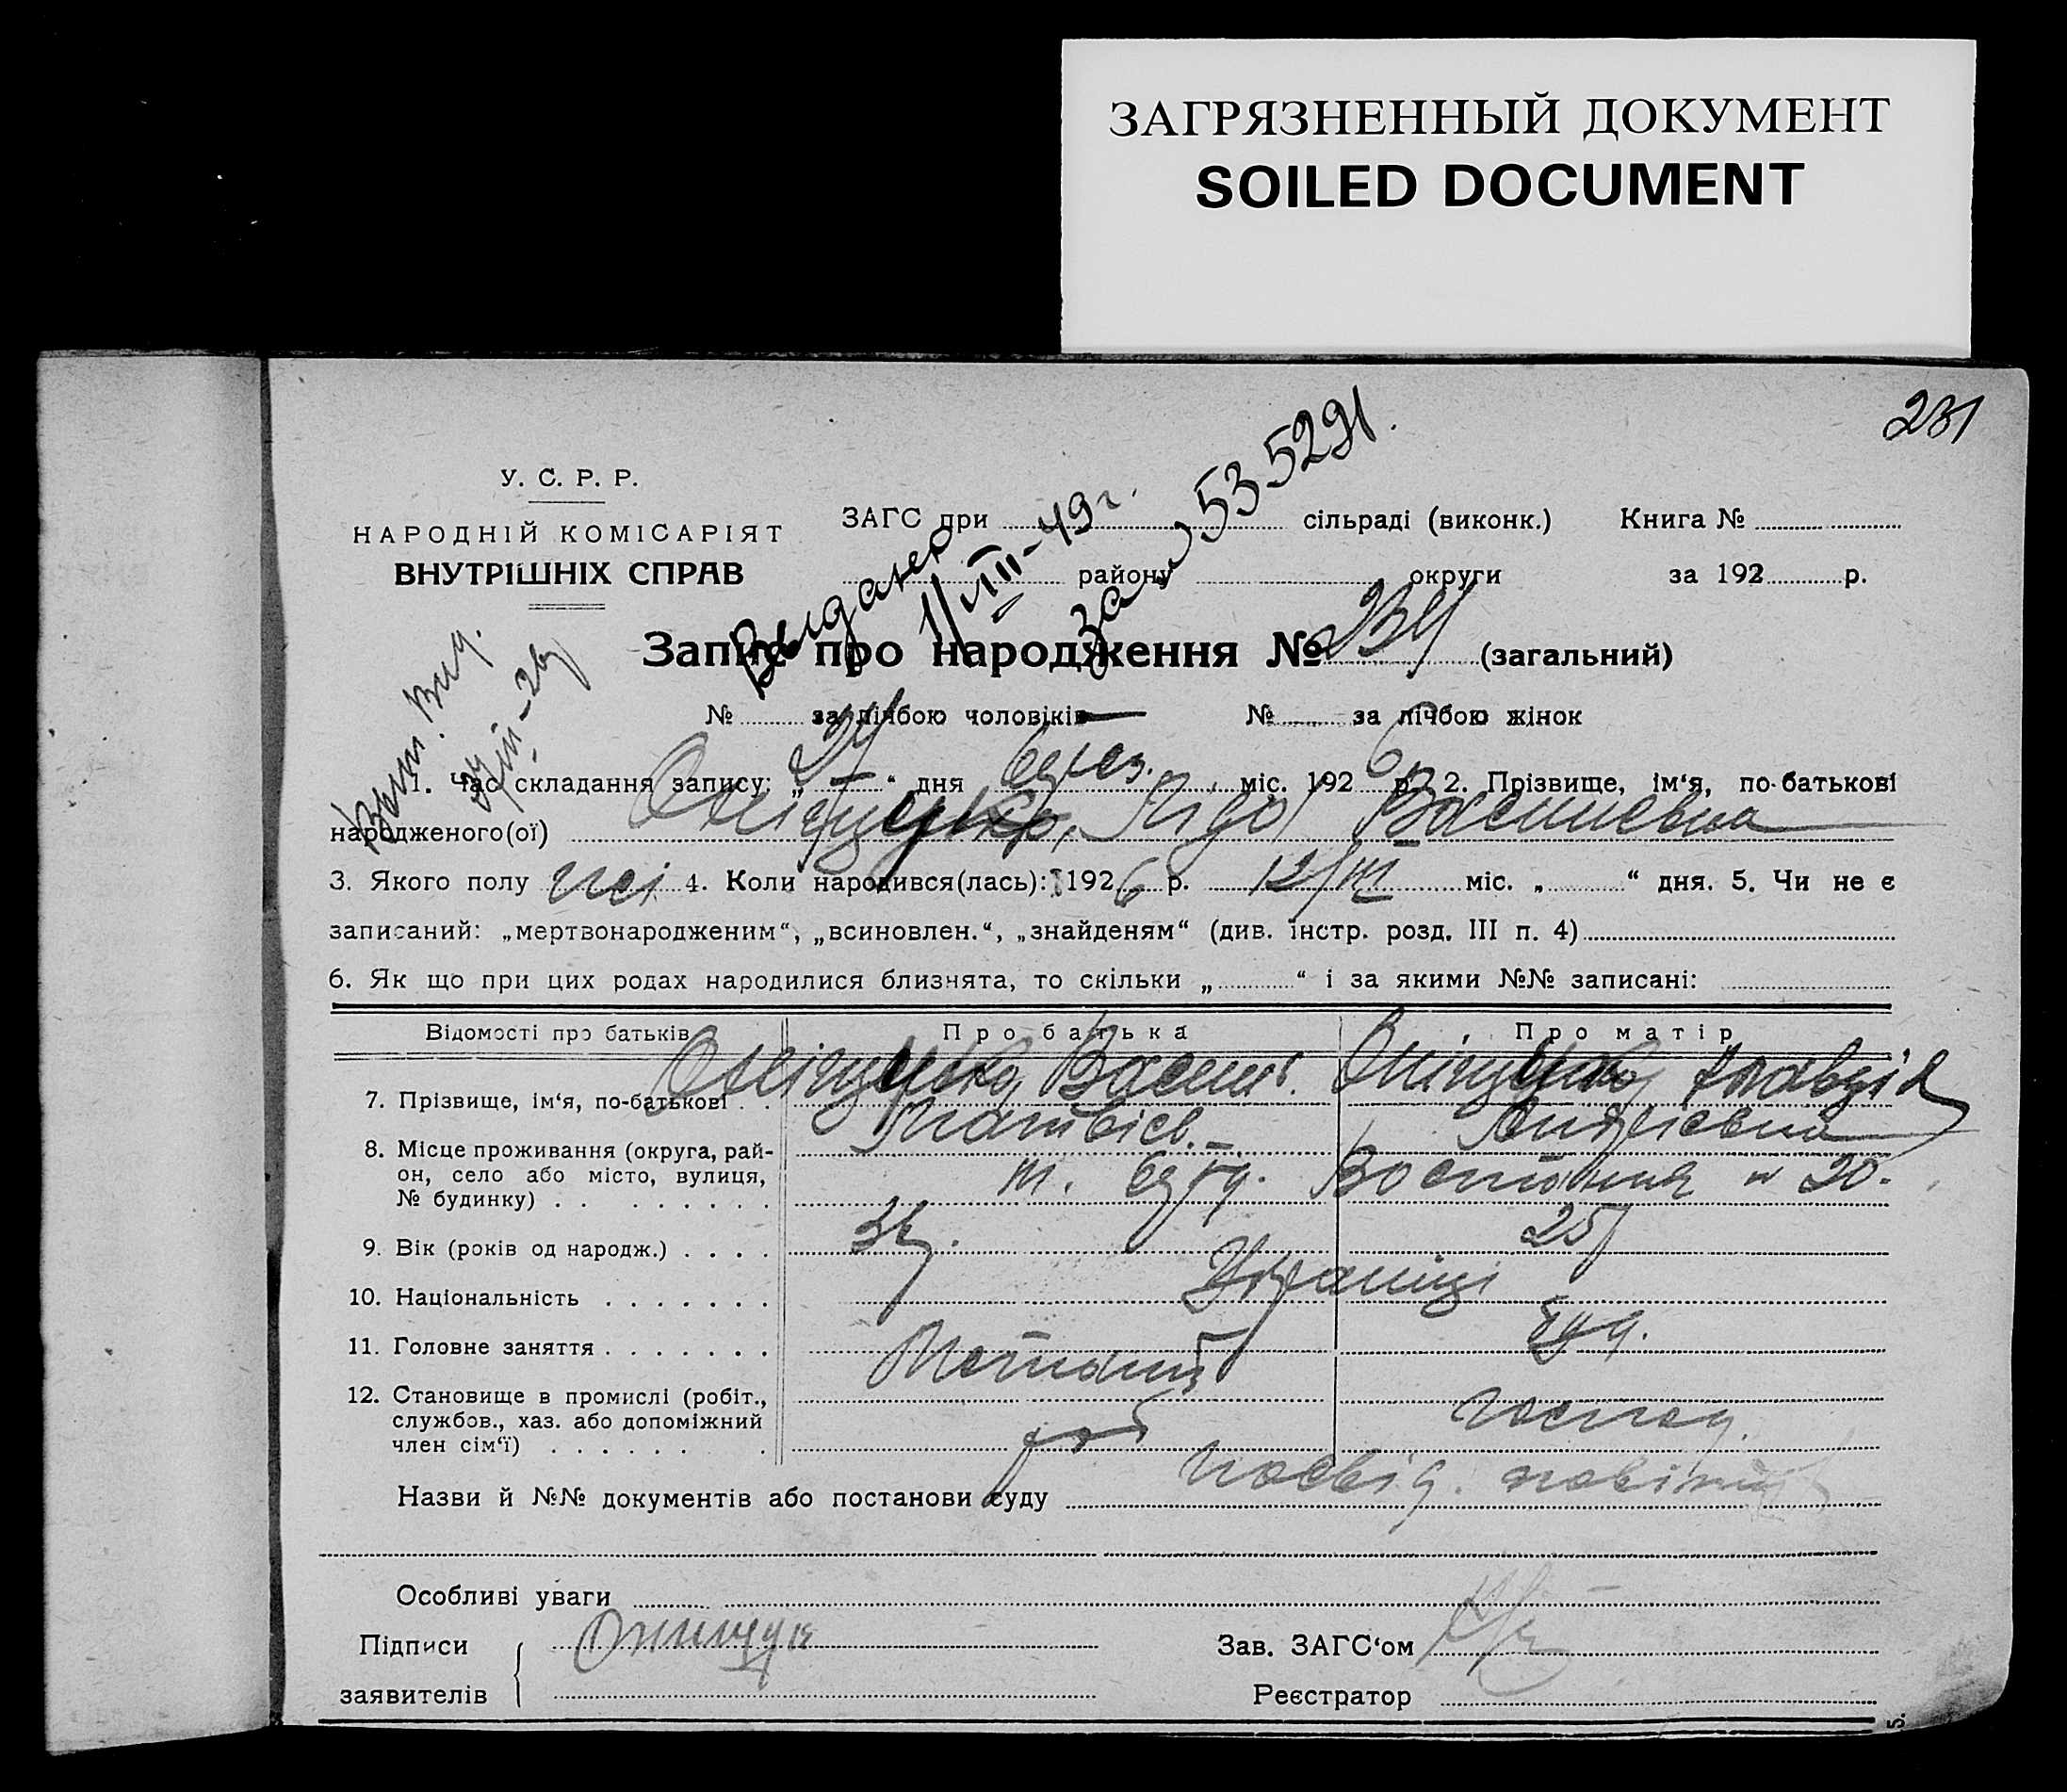 ЗАГРЯЗНЕННЫЙ ДОКУМЕНТ
SOILED DOCUMENT
231
У. С. Р. Р.
НАРОДНІЙ КОМІСАРІЯТ
ВНУТРІШНІХ СПРАВ
ЗАГС при сільраді (виконк.) Книга №
району округи за 192 р.
11/VIII-49г.
535291.
Запис про народження № 234 (загальний)
№ за лічбою чоловіків № за лічбою жінок
1. Час складання запису: „24“ дня берез. міс. 1926 р. 2. Прізвище, ім‘я, по-батькові
народженого(ої) Оніщенко, Лідія Василиевна
3. Якого полу жі 4. Коли народився(лась): 1926 р. 12/III міс. „ “ дня. 5. Чи не є
записаний: „мертвонародженим“, „всиновлен.“, „знайденям“ (див. інстр. розд. III п. 4)
6. Як що при цих родах народилися близнята, то скільки „ “ і за якими №№ записані:
Відомості про батьків Про батька Про матір
7. Прізвище, ім‘я, по-батькові Оніщенко, Василь Оніщенко Клавдія
Матвієв. Андріевна
8. Місце проживання (округа, рай-
он, село або місто, вулиця,
№ будинку) м. вул. Востання № 20.
9. Вік (років од народж.) 25
10. Національність Українці
11. Головне заняття
12. Становище в промислі (робіт.,
службов., хаз. або допоміжний
член сім‘ї) роб господ.
Назви й №№ документів або постанови суду посвід.
Особливі уваги
Підписи
заявителів
Зав. ЗАГС‘ом
Реєстратор
5.